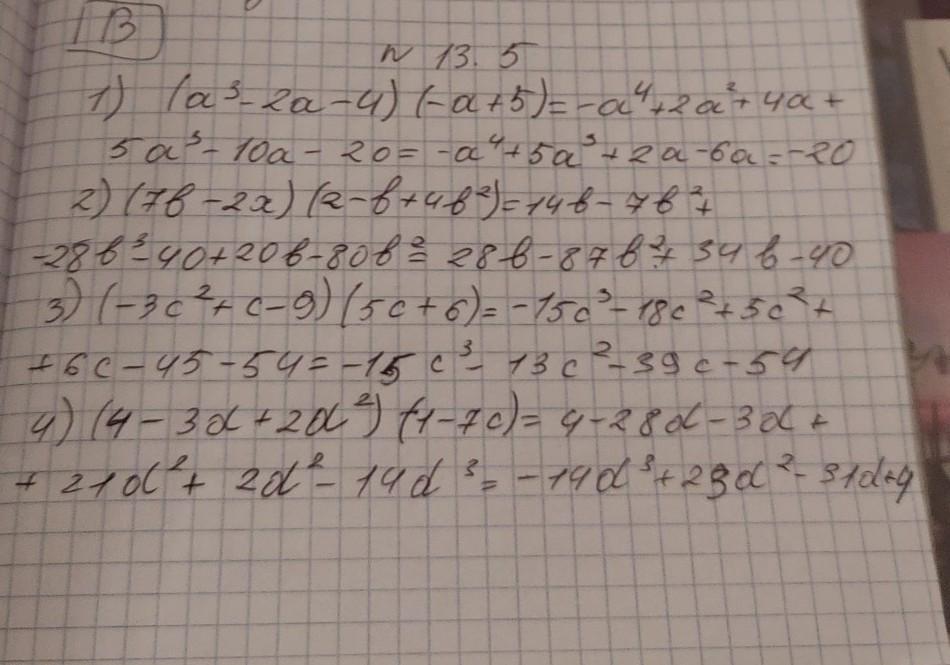 В
N 13. 5
1) (a³ - 2a - 4) (-a + 5) = -a⁴ + 2a² + 4a +
5a³ - 10a - 20 = -a⁴ + 5a³ + 2a - 6a = -20
2) (7b - 2a) (2 - b + 4b²) = 14b - 7b² +
-28b³ - 40 + 20b - 80b² = 28b - 87b² + 34b - 40
3) (-3c² + c - 9) (5c + 6) = -15c³ - 18c² + 5c² +
+ 6c - 45 - 54 = -15c³ - 13c² - 39c - 54
4) (4 - 3d + 2d²) (1 - 7c) = 4 - 28d - 3d +
+ 21d² + 2d² - 14d³ = -14d³ + 23d² - 31d + 4